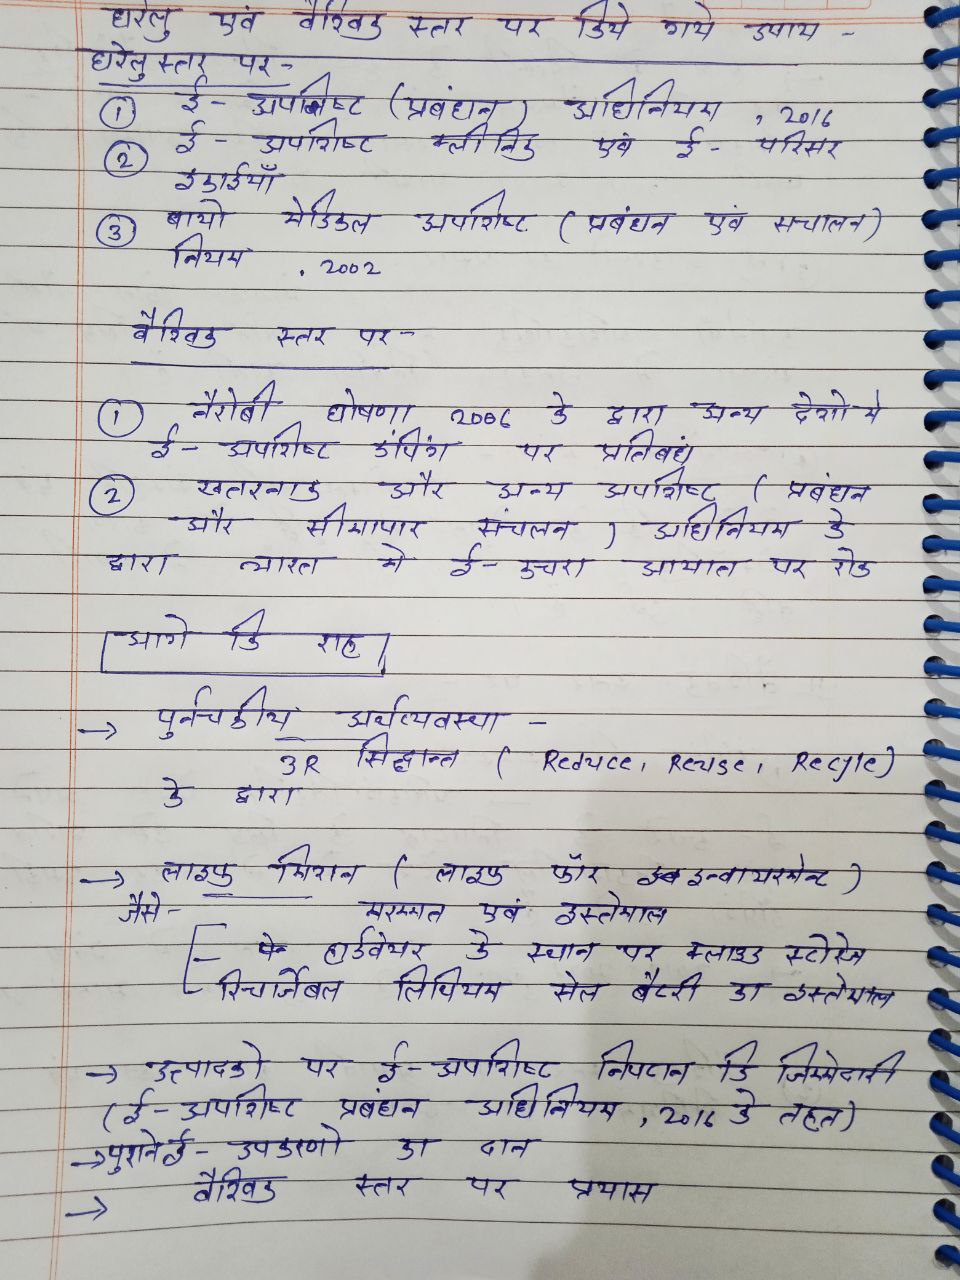 घरेलु एवं वैश्विक स्तर पर किये गये उपाय -
घरेलु स्तर पर -
① ई - अपशिष्ट (प्रबंधन) अधिनियम , 2016
② ई - अपशिष्ट क्लीनिक एवं ई - परिसर
इकाईयाँ
③ बायो मेडिकल अपशिष्ट (प्रबंधन एवं संचालन)
नियम , 2002
वैश्विक स्तर पर -
① नैरोबी घोषणा 2006 के द्वारा अन्य देशो मे
ई - अपशिष्ट डंपिंग पर प्रतिबधं
② खतरनाक और अन्य अपशिष्ट ( प्रबंधन
और सीमापार संचलन ) अधिनियम के
द्वारा भारत मे ई - कचरा आयात पर रोक
आगे कि राह
→ पुर्नचक्रीय अर्थव्यवस्था -
3R सिद्धान्त ( Reduce, Reuse, Recycle)
के द्वारा
→ लाइफ मिशन ( लाइफ फॉर इन्वायरमेन्ट )
जैसे - मरम्मत एवं इस्तेमाल
- हार्डवेयर के स्थान पर क्लाउड स्टोरेज
रिचार्जेबल लिथियम सेल बैटरी का इस्तेमाल
→ उत्पादको पर ई - अपशिष्ट निपटान कि जिम्मेदारी
(ई - अपशिष्ट प्रबंधन अधिनियम , 2016 के तहत)
→ पुराने ई - उपकरणो का दान
→ वैश्विक स्तर पर प्रयास